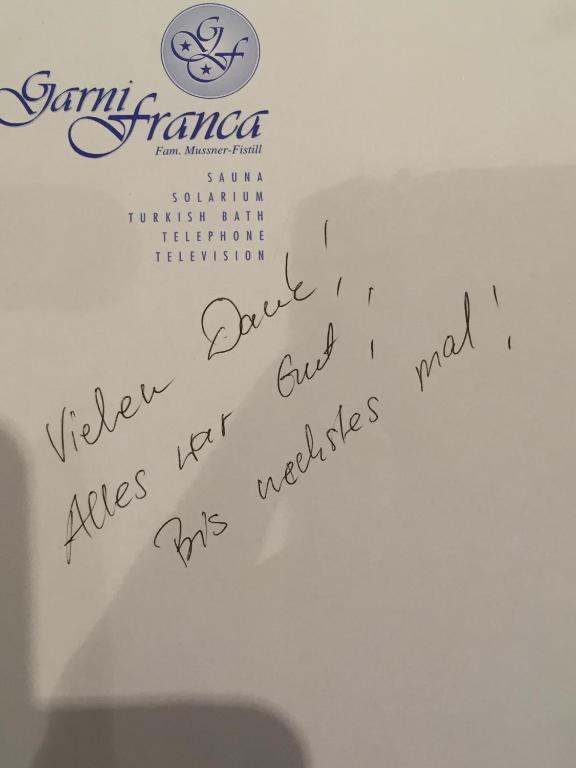 GF
Garni
Franca
Fam. Mussner-Fistill
SAUNA
SOLARIUM
TURKISH BATH
TELEPHONE
TELEVISION
Vielen Dank!
Alles war Gut!
Bis nechstes mal!